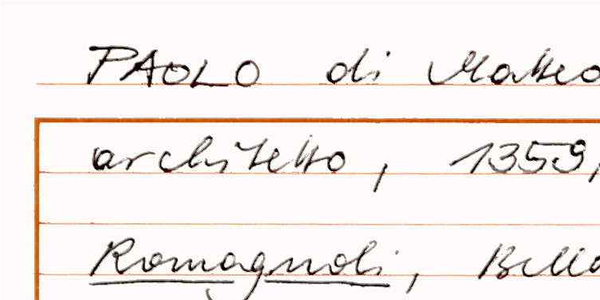 PAOLO di Matteo
architetto, 1359,
Romagnoli, Bella